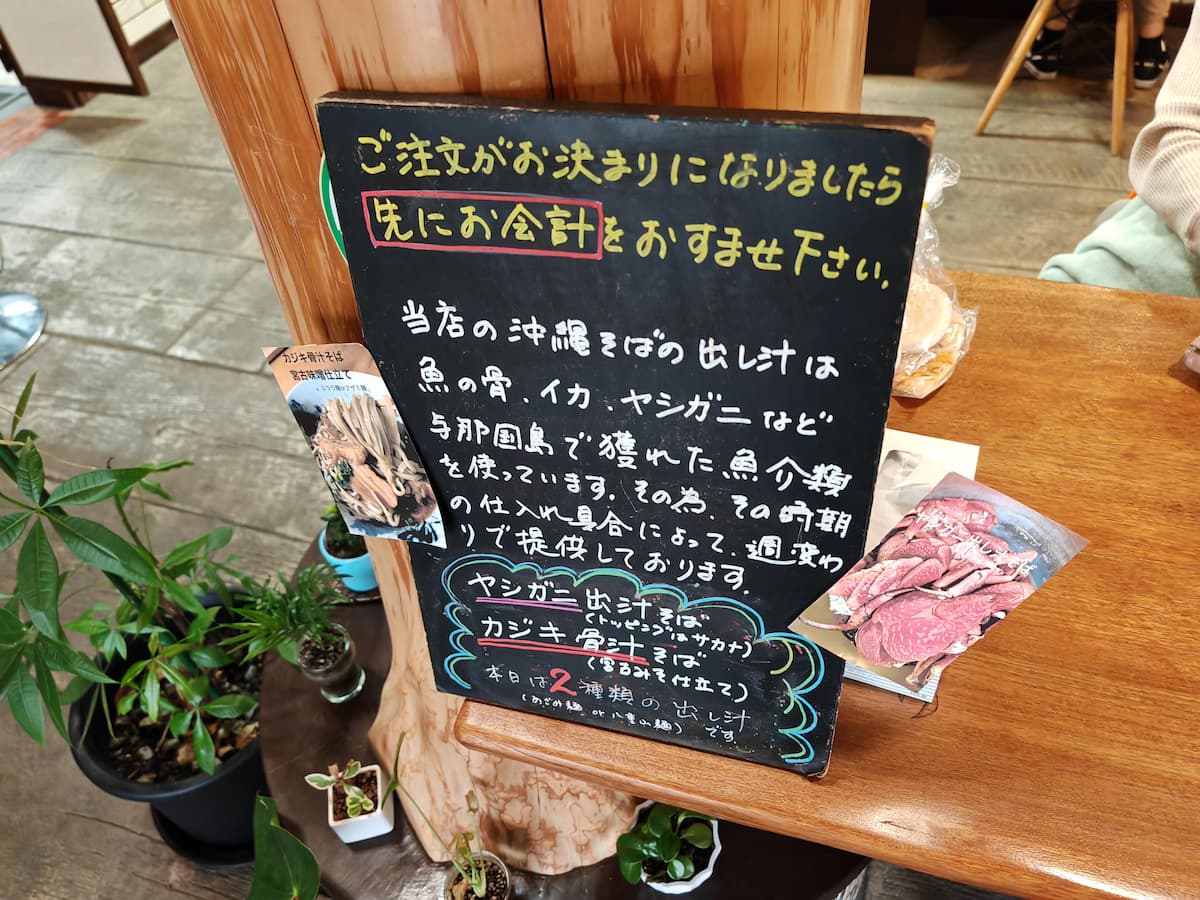 ご注文がお決まりになりましたら
先にお会計をおすませ下さい.
当店の沖縄そばの出し汁は
魚の骨、イカ、ヤシガニなど
与那国島で獲れた魚介類
を使っています.その為、その時期
の仕入れ具合によって、週変わ
りで提供しております.
ヤシガニ出汁そば
(トッピングはサカナ)
カジキ骨汁そば
(宮古みそ仕立て)
本日は2種類の出し汁
(あざみ麺 or 八重山麺)です.
カジキ骨汁そば
宮古味噌仕立て
出しそば